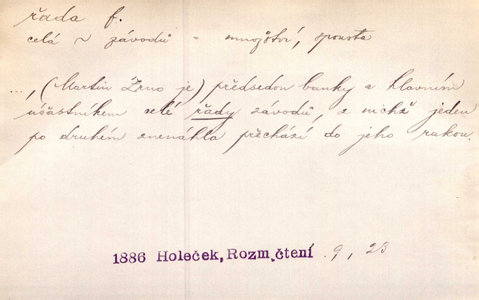 řada f.
celá ~ závodů = množství, spousta
..., (Martin Žrno je) předsedou banky a hlavním
účastníkem celé řady závodů, z nichž jeden
po druhém znenáhla přechází do jeho rukou.
1886 Holeček, Rozm. čtení 9, 23